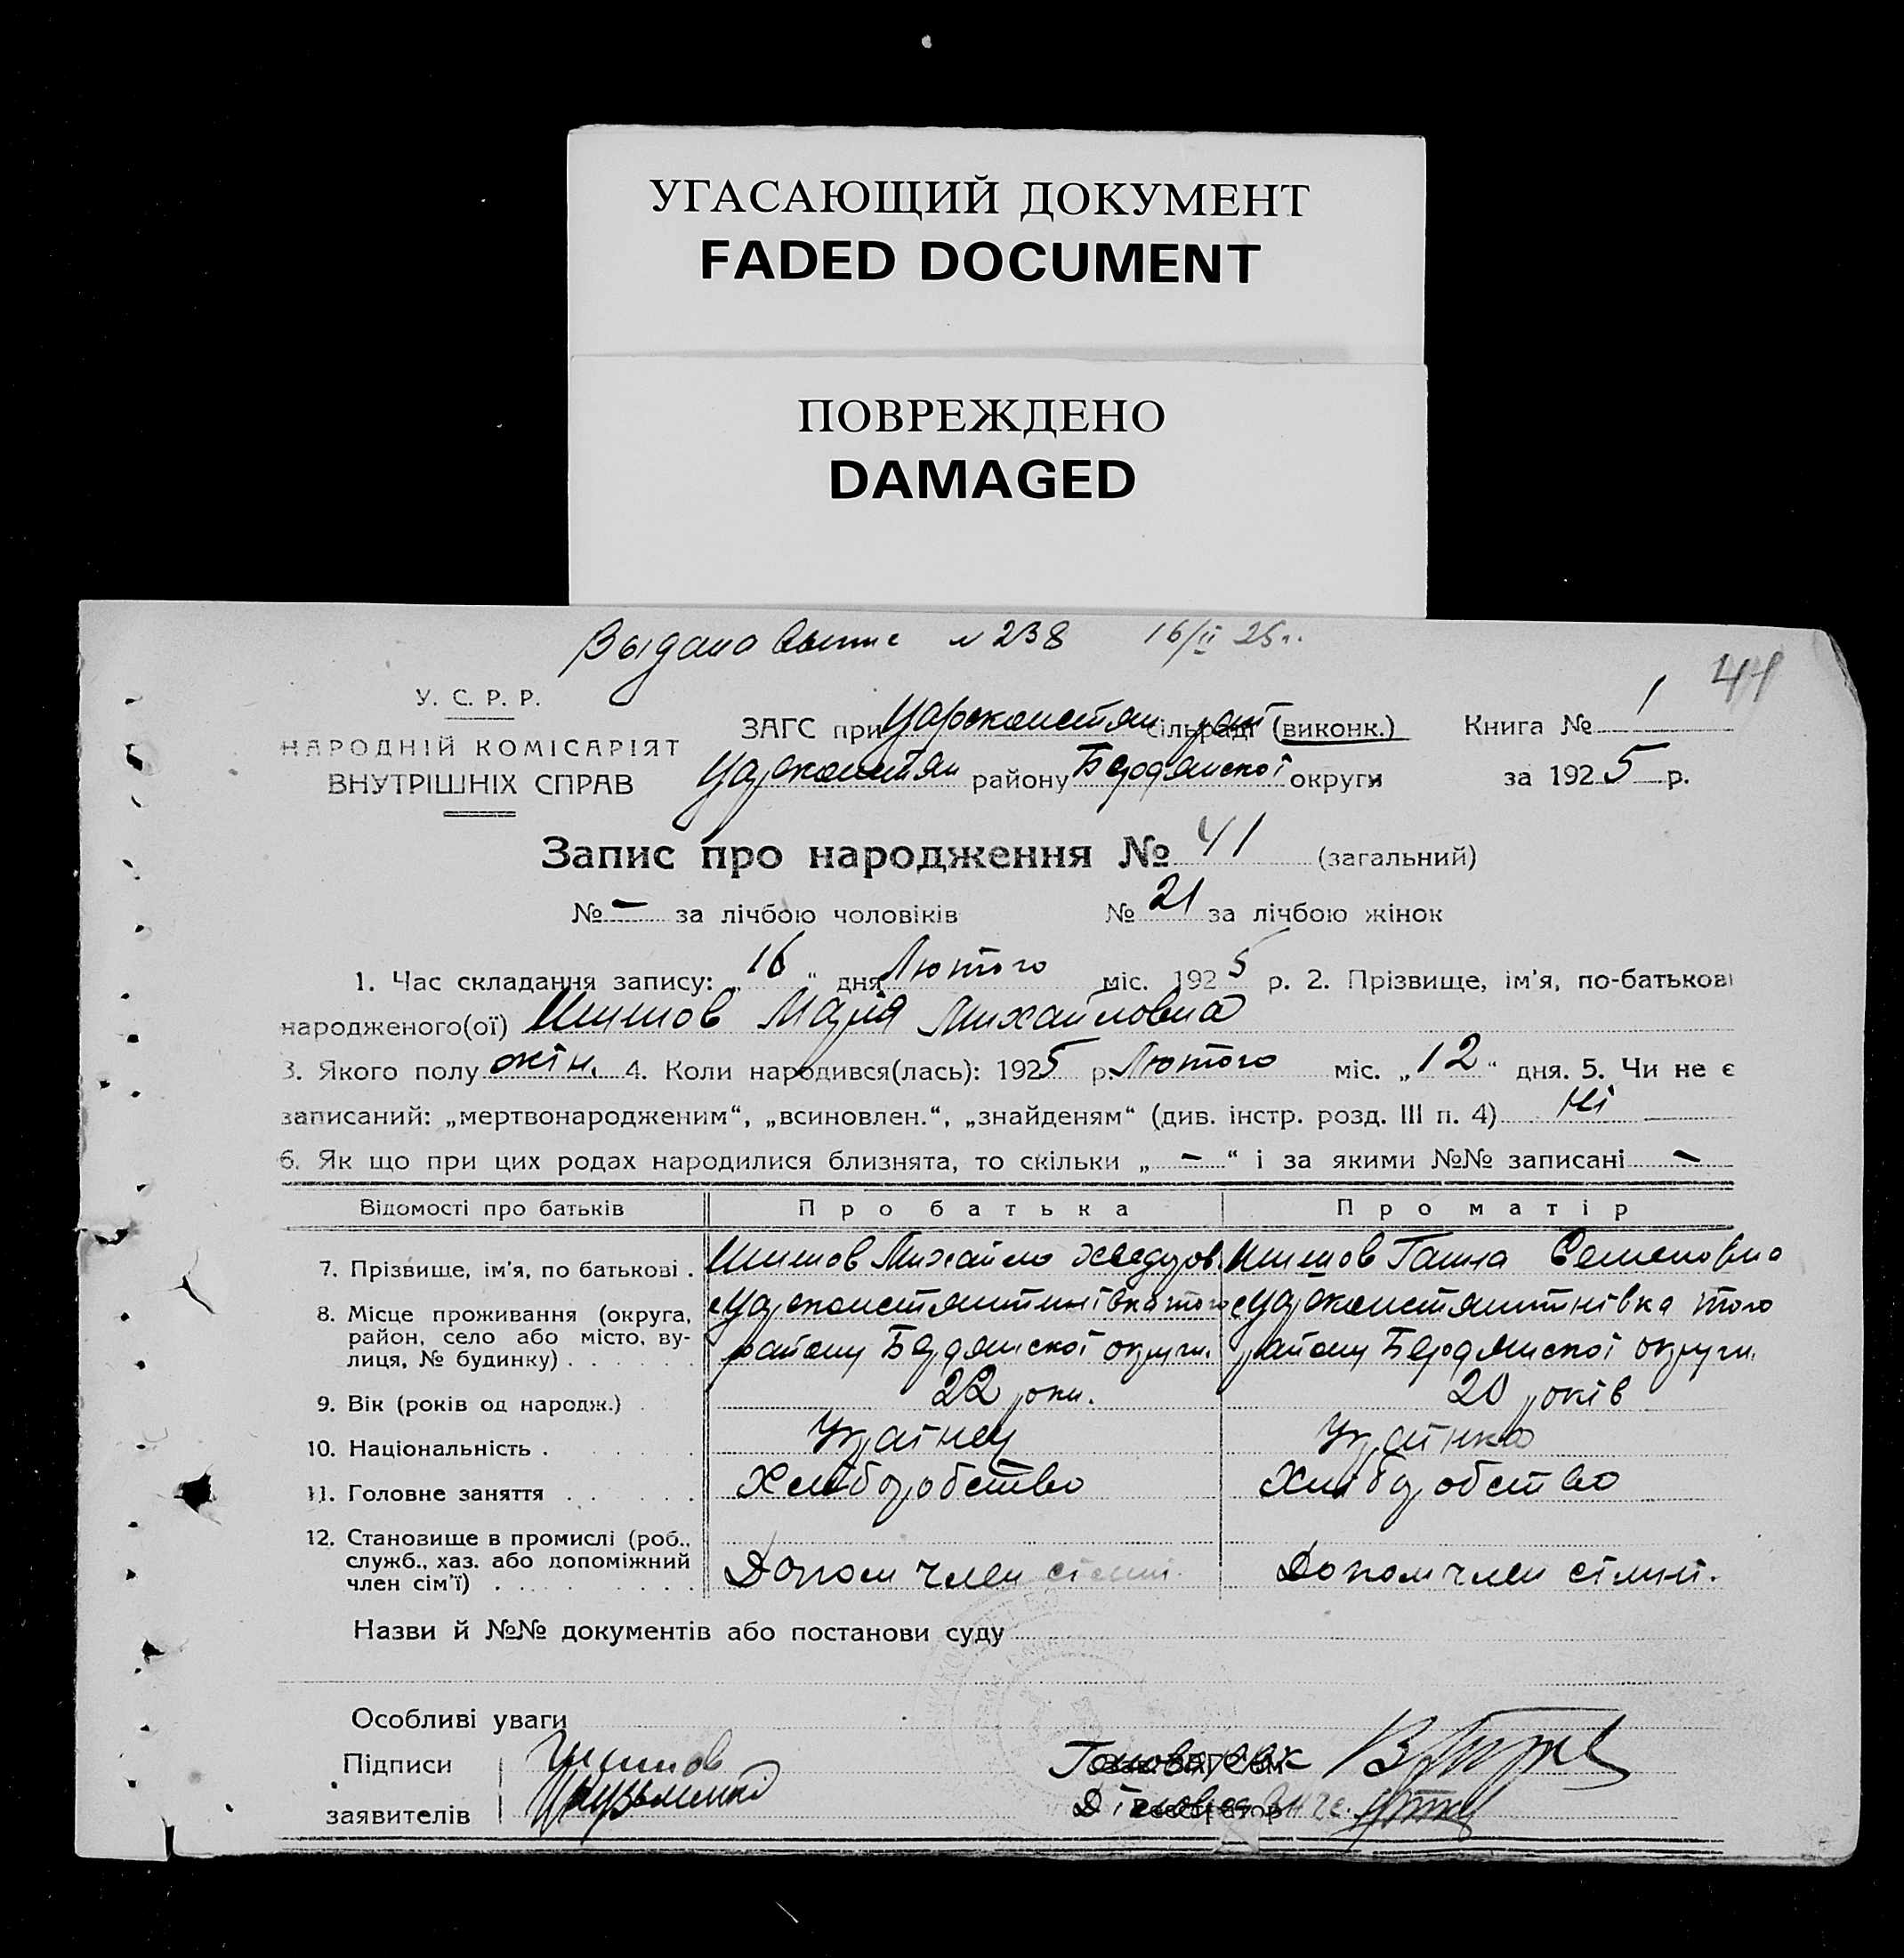 УГАСАЮЩИЙ ДОКУМЕНТ
FADED DOCUMENT
ПОВРЕЖДЕНО
DAMAGED
Выдано N 238 16/II 25 г.
44
У. С. Р. Р.
НАРОДНІЙ КОМІСАРІЯТ
ВНУТРІШНІХ СПРАВ
ЗАГС при Цареконстян сільраді (виконк.) Книга № 1
Цареконстян району Бердянської округи за 1925 р.
Запис про народження № 41 (загальний)
№ - за лічбою чоловіків № 21 за лічбою жінок
1. Час складання запису: „16“ дня Лютого міс. 1925 р. 2. Прізвище, ім'я, по-батькові
народженого(ої) Шишов Марія Михайловна
3. Якого полу жін. 4. Коли народився(лась): 1925 р. Лютого міс. „12“ дня. 5. Чи не є
записаний: „мертвонародженим“, „всиновлен.“, „знайденям“ (див. інстр. розд. III п. 4) Ні
6. Як що при цих родах народилися близнята, то скільки „-“ і за якими №№ записані -
Відомості про батьків Про батька Про матір
7. Прізвище, ім'я, по батькові . Шишов Михайло Хведоров. Шишов Ганна Семеновна
8. Місце проживання (округа, район, село або місто, вулиця, № будинку) . . . . . .
с Цареконстянтинівка того району Бердянскої округи.
с Цареконстянтнівка того району Бердянскої округи.
9. Вік (років од народж.) . 22 роки. 20 років
10. Національність . . . . Українец Українка
11. Головне заняття . . . . . Хліборобство Хліборобство
12. Становище в промислі (роб., служб., хаз. або допоміжний член сім'ї) . . . . . . . . .
Допом член сімні. Допом член сімні.
Назви й №№ документів або постанови суду
Особливі уваги
Підписи Шишов
заявителів Голова
Реєстратор